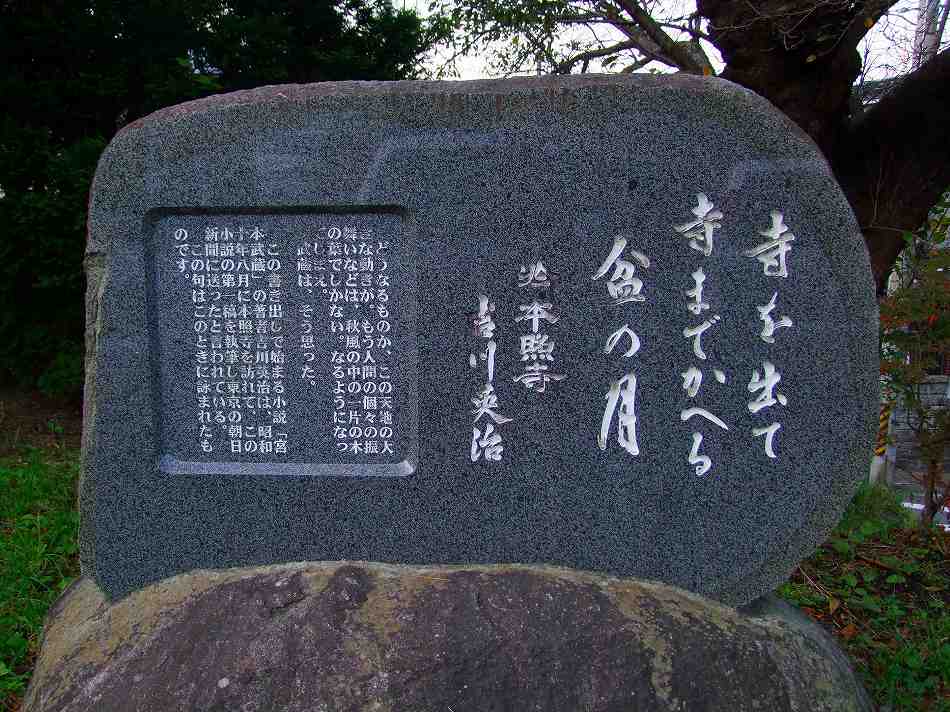 寺を出て
寺までかへる
盆の月
於本照寺
吉川英治
どうなるものか、この天地の大
きな動きが。もう人間の個々の振
舞いなどは、秋風の中の一片の木
の葉でしかない。なるようになっ
てしまえ。
武蔵は、そう思った。
この書き出しで始まる小説「宮
本武蔵」の著者吉川英治は、昭和
十年八月に本照寺を訪れて、この
小説の第一稿を執筆し東京の朝日
新聞に送ったと言われている。
この句はこのときに詠まれたも
のです。